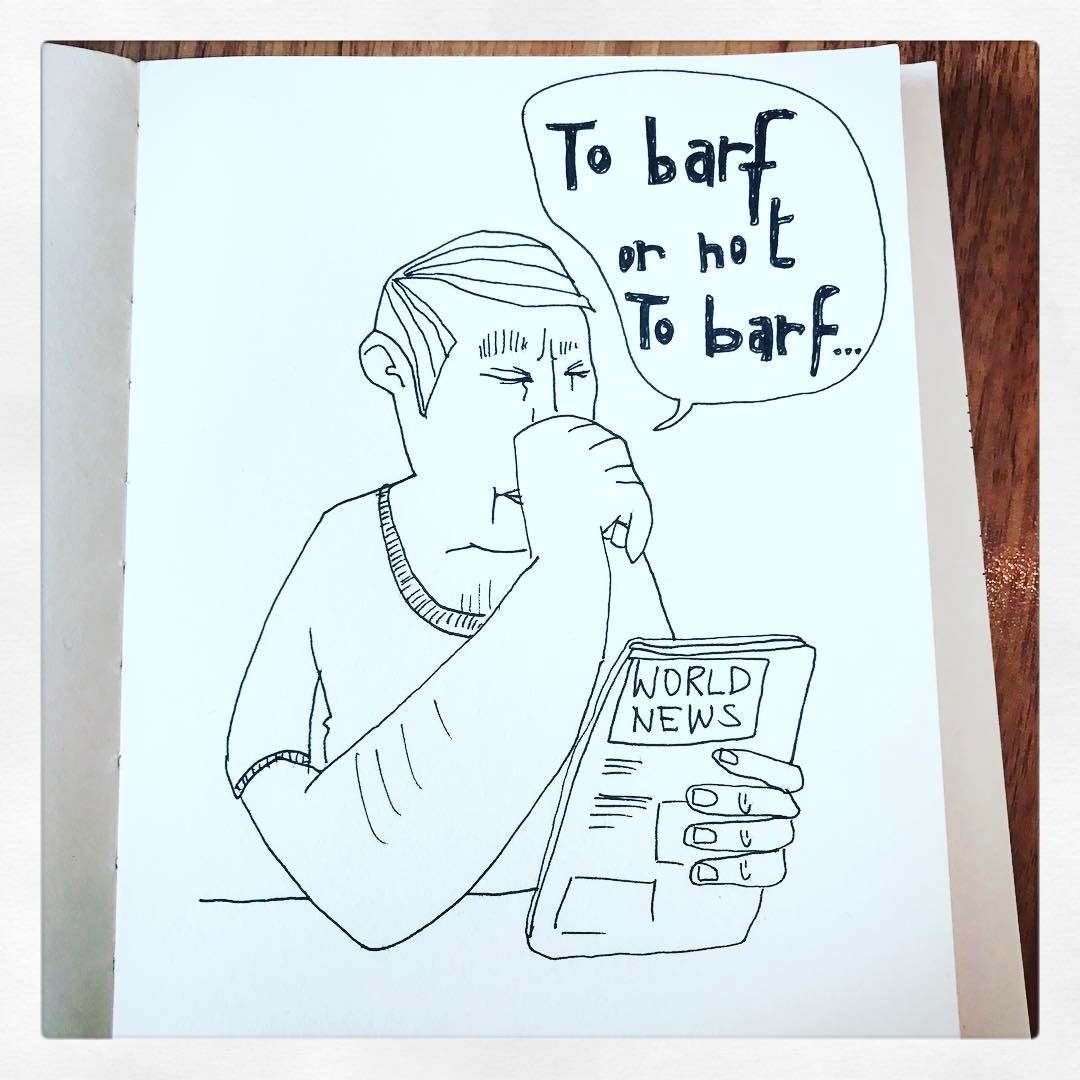 To barf
or not
To barf...
WORLD
NEWS